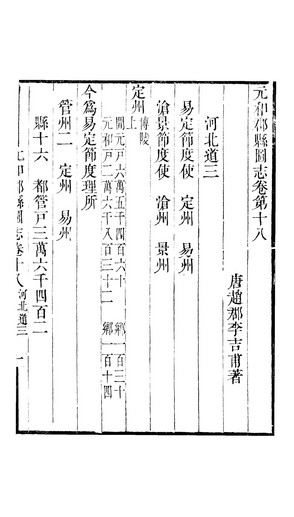 元和郡縣圖志卷第十八
唐趙郡李吉甫著
河北道三
易定節度使　定州　易州
滄景節度使　滄州　景州
定州　博陵
上
開元戶六萬五千四百六十　鄉一百三十
元和戶二萬六千八百三十二　鄉一百十四
今爲易定節度理所
管州二　定州　易州
縣十六　都管戶三萬六千四百二
元和郡縣圖志卷十八　河北道三　一